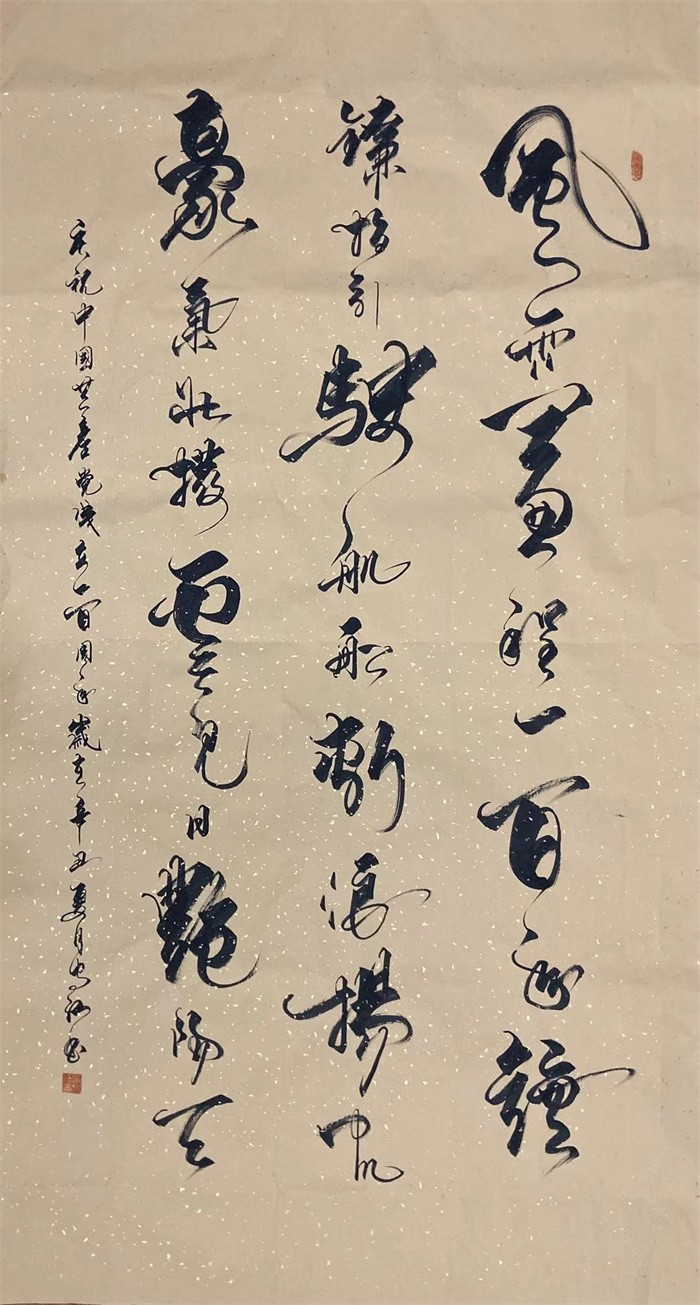 風雨兼程一百年
鐮指引駛航船斬浪揚帆
豪氣壯撥雲見日艷陽天
慶祝中國共產党成立一百周年歲在辛丑夏月